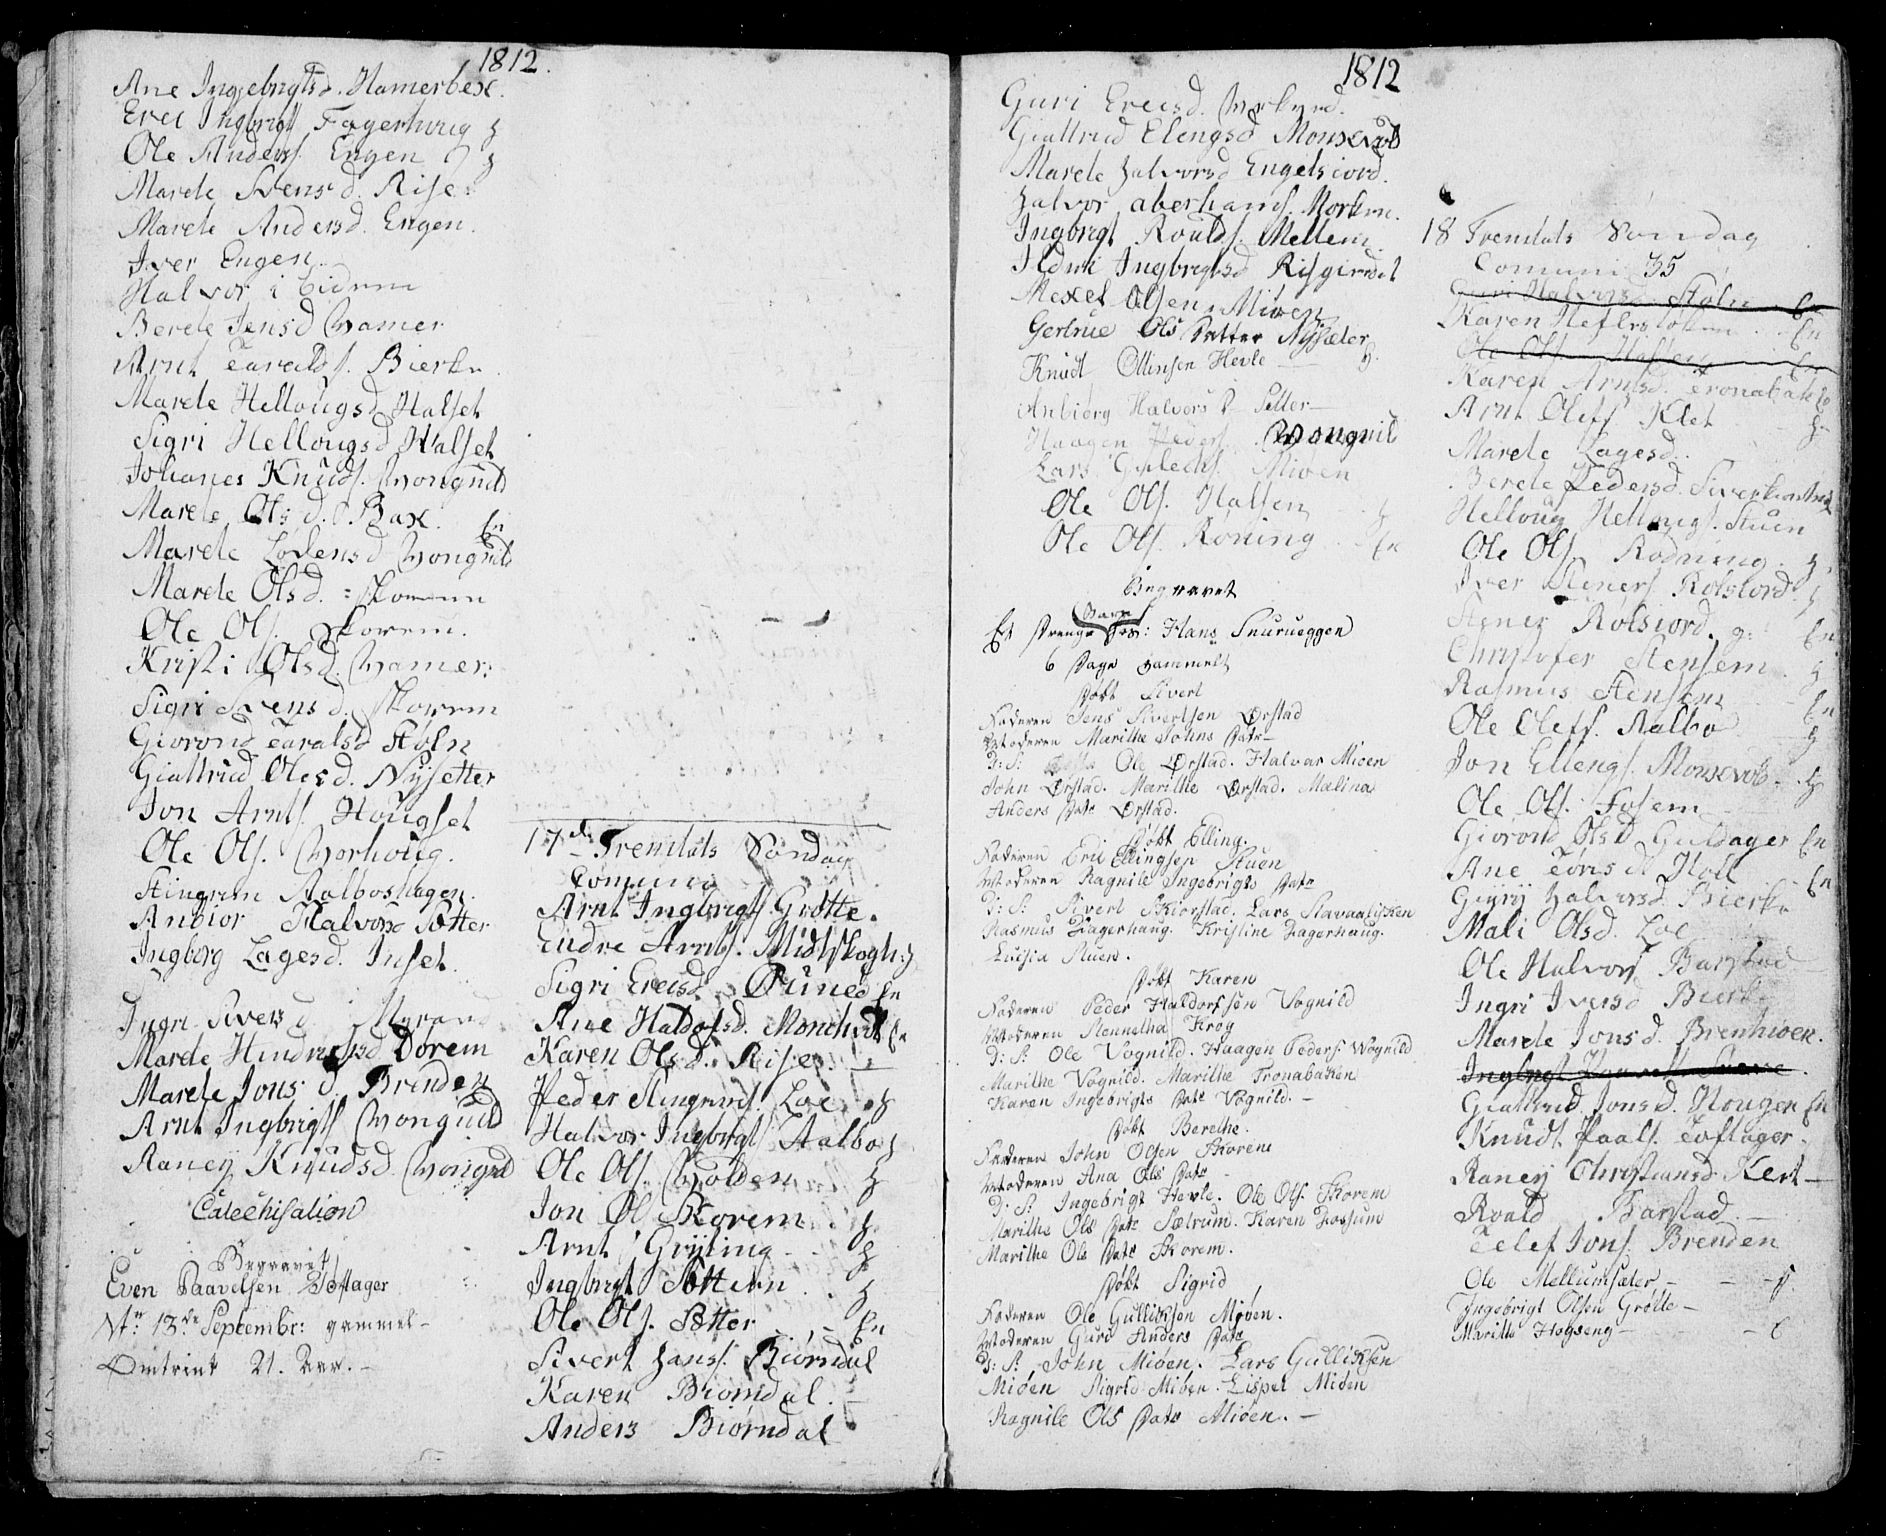 1812.
Ane Ingebrigtsd. Hamerbex.
Erei Ingbrigts Fagerhoug
Ole Anders. Engen
Marete Svensd. Rise
Marete Andersd. Engen.
Iver Engen.
Halvor i
Berete Jensd Hamer
Arnt Taralds. Bierke
Marete Hellougsd Halset
Sigri Hellougsd Halset
Johanes Knuds. Wongnild
Marete Olsd. Bax. En
Marete Lodensd Wongnild
Marete Olsd. Skorem
Ole Ols. Skorem.
Kristi Olsd. Hamer.
Sigri Svensd. Skorem
Giorond Taralsd Stoln
Giattrud Olesd. Nysetter
Jon Arnts. Hougset
Ole Ols. Worhoug.
Stingrim Aalboshagen.
Anbior Halvorsd Sotter
Ingborg Lagesd. Inset
Ingri Siversd
Marete Hindrichsd Dorem
Marete Jonsd. Brenden
Arnt Ingbrigts Wongnild
Raney Knudsd. Wongnild
Catechisation
Begravet
Even Paavelsen Toftager
Nt: 13de Septembr: gammel
Omtrent 21. Aar. -
17de Trenitats Søndag
Comunic
Arnt Ingbrigts. Grøtte.
Endre Arnts. Midtskogh
Sigri Ereisd. Øunes En
Ane Haldorsd. En
Karen Olsd. Rise
Peder Stingrims. Loe
Halvor Ingbrigts Aalbo
Ole Ols. Wolden
Jon Ol Skorem
Arnt Gryting
Ingbrigt Søttern
Ole Ols. Søtter En
Sivert Hans. Biørndal
Karen Biørndal.
Anders Biørndal
1812
Guri Ereisd.
Giattrud Elengsd
Marete Halvorsd Engelsiord.
Halvor aberhams. Morken.
Ingbrigt Roalds. Mellem
Ildri Ingbrigtsd Risgierdet
Mexel Olsen. Miøen
Gertrue Ols Datter Nysæter
Knudt Ollensen Hevle
Anbiorg Halvors D Setter
Haagen Peders. Wongnild
Lars Miøen
Ole Ols. Halsen
Ole Ols. Røning En
Begravet
Barn
Et Drenge Hans Snurueggen
6 Dage Gammelt
Døbt Sivert
Faderen Jens Sivertsen Ørstad
Moderen Marithe Johns Datr
D: S: Ole Ørstad. Halvar Mioen
John Ørstad. Marithe Ørstad. Malina
Anders Datr Ørstad.
Døbt Elling.
Faderen Eric Ellingsen Stuen
Moderen Ragnile Ingebrigts Datr
D: S: Sivert Skiorstad. Lars Stavaalisken
Rasmus Fagerhaug. Kristine Fagerhaug.
Luisia Stuen.
Døbt Karen
Faderen Peder Haldorssen Vognild
Moderen Stennetha Krog
D: S: Ole Vognild. Haagen Peders. Wognild
Marithe Vognild. Marithe Tronabaken
Karen Ingebrigts Datr Vognild. -
Døbt Berethe.
Faderen John Olsen Skorem
Moderen Ana Ols Datr
D: S: Ingebrigt Hevle. Ole Ols. Skorem
Marithe Ols Datr Sætrum. Karen Fossum
Marithe Ols Datr Skorem.
Døbt Sigrid
Faderen Ole Gulliksen Miøen.
Moderen Guri Anders Datr
D: S: John Miøen. Lars Gulliksen
Miøen Sigrid Miøen. Lispet Miøen
Ragnile Ols Datr Miøen. -
18 Trenitats Søndag
Comuni 35
Guri Halvorsd Stoln En
Karen En
Ole Ols.
Karen Arntsd. Tronabaken
Arnt Olefs Klet
Marete Lagesd.
Berete Pedersd.
Helloug Hellougs. Stuen
Ole Ols Rodning
Iver Steners Rolsiord.
Stener Rølsiord. En
Christofer Stensem
Rasmus Stensem En
Ole Olefs. Aalbo
Jon Ellengs.
Ole Ols. Fosem
Giorond Olsd. Guldager En
Ane Torisd. Holt En
Gyry Halvorsd. Bierke
Mali Olsd. Loe
Ole Halvors Barstad
Ingri Iversd Bierke
Marete Jonsd. Brenhioen.
Ingbrigt
Giattrud Jonsd. Hougen En
Knudt Paals. Toftager.
Raney Christiansd. Klet -
Roald Barstad. -
Telef Jons. Brenden
Ole Mellumsæter -
Ingebrigt Olsen Grøtte -
Marithe Hogseng -